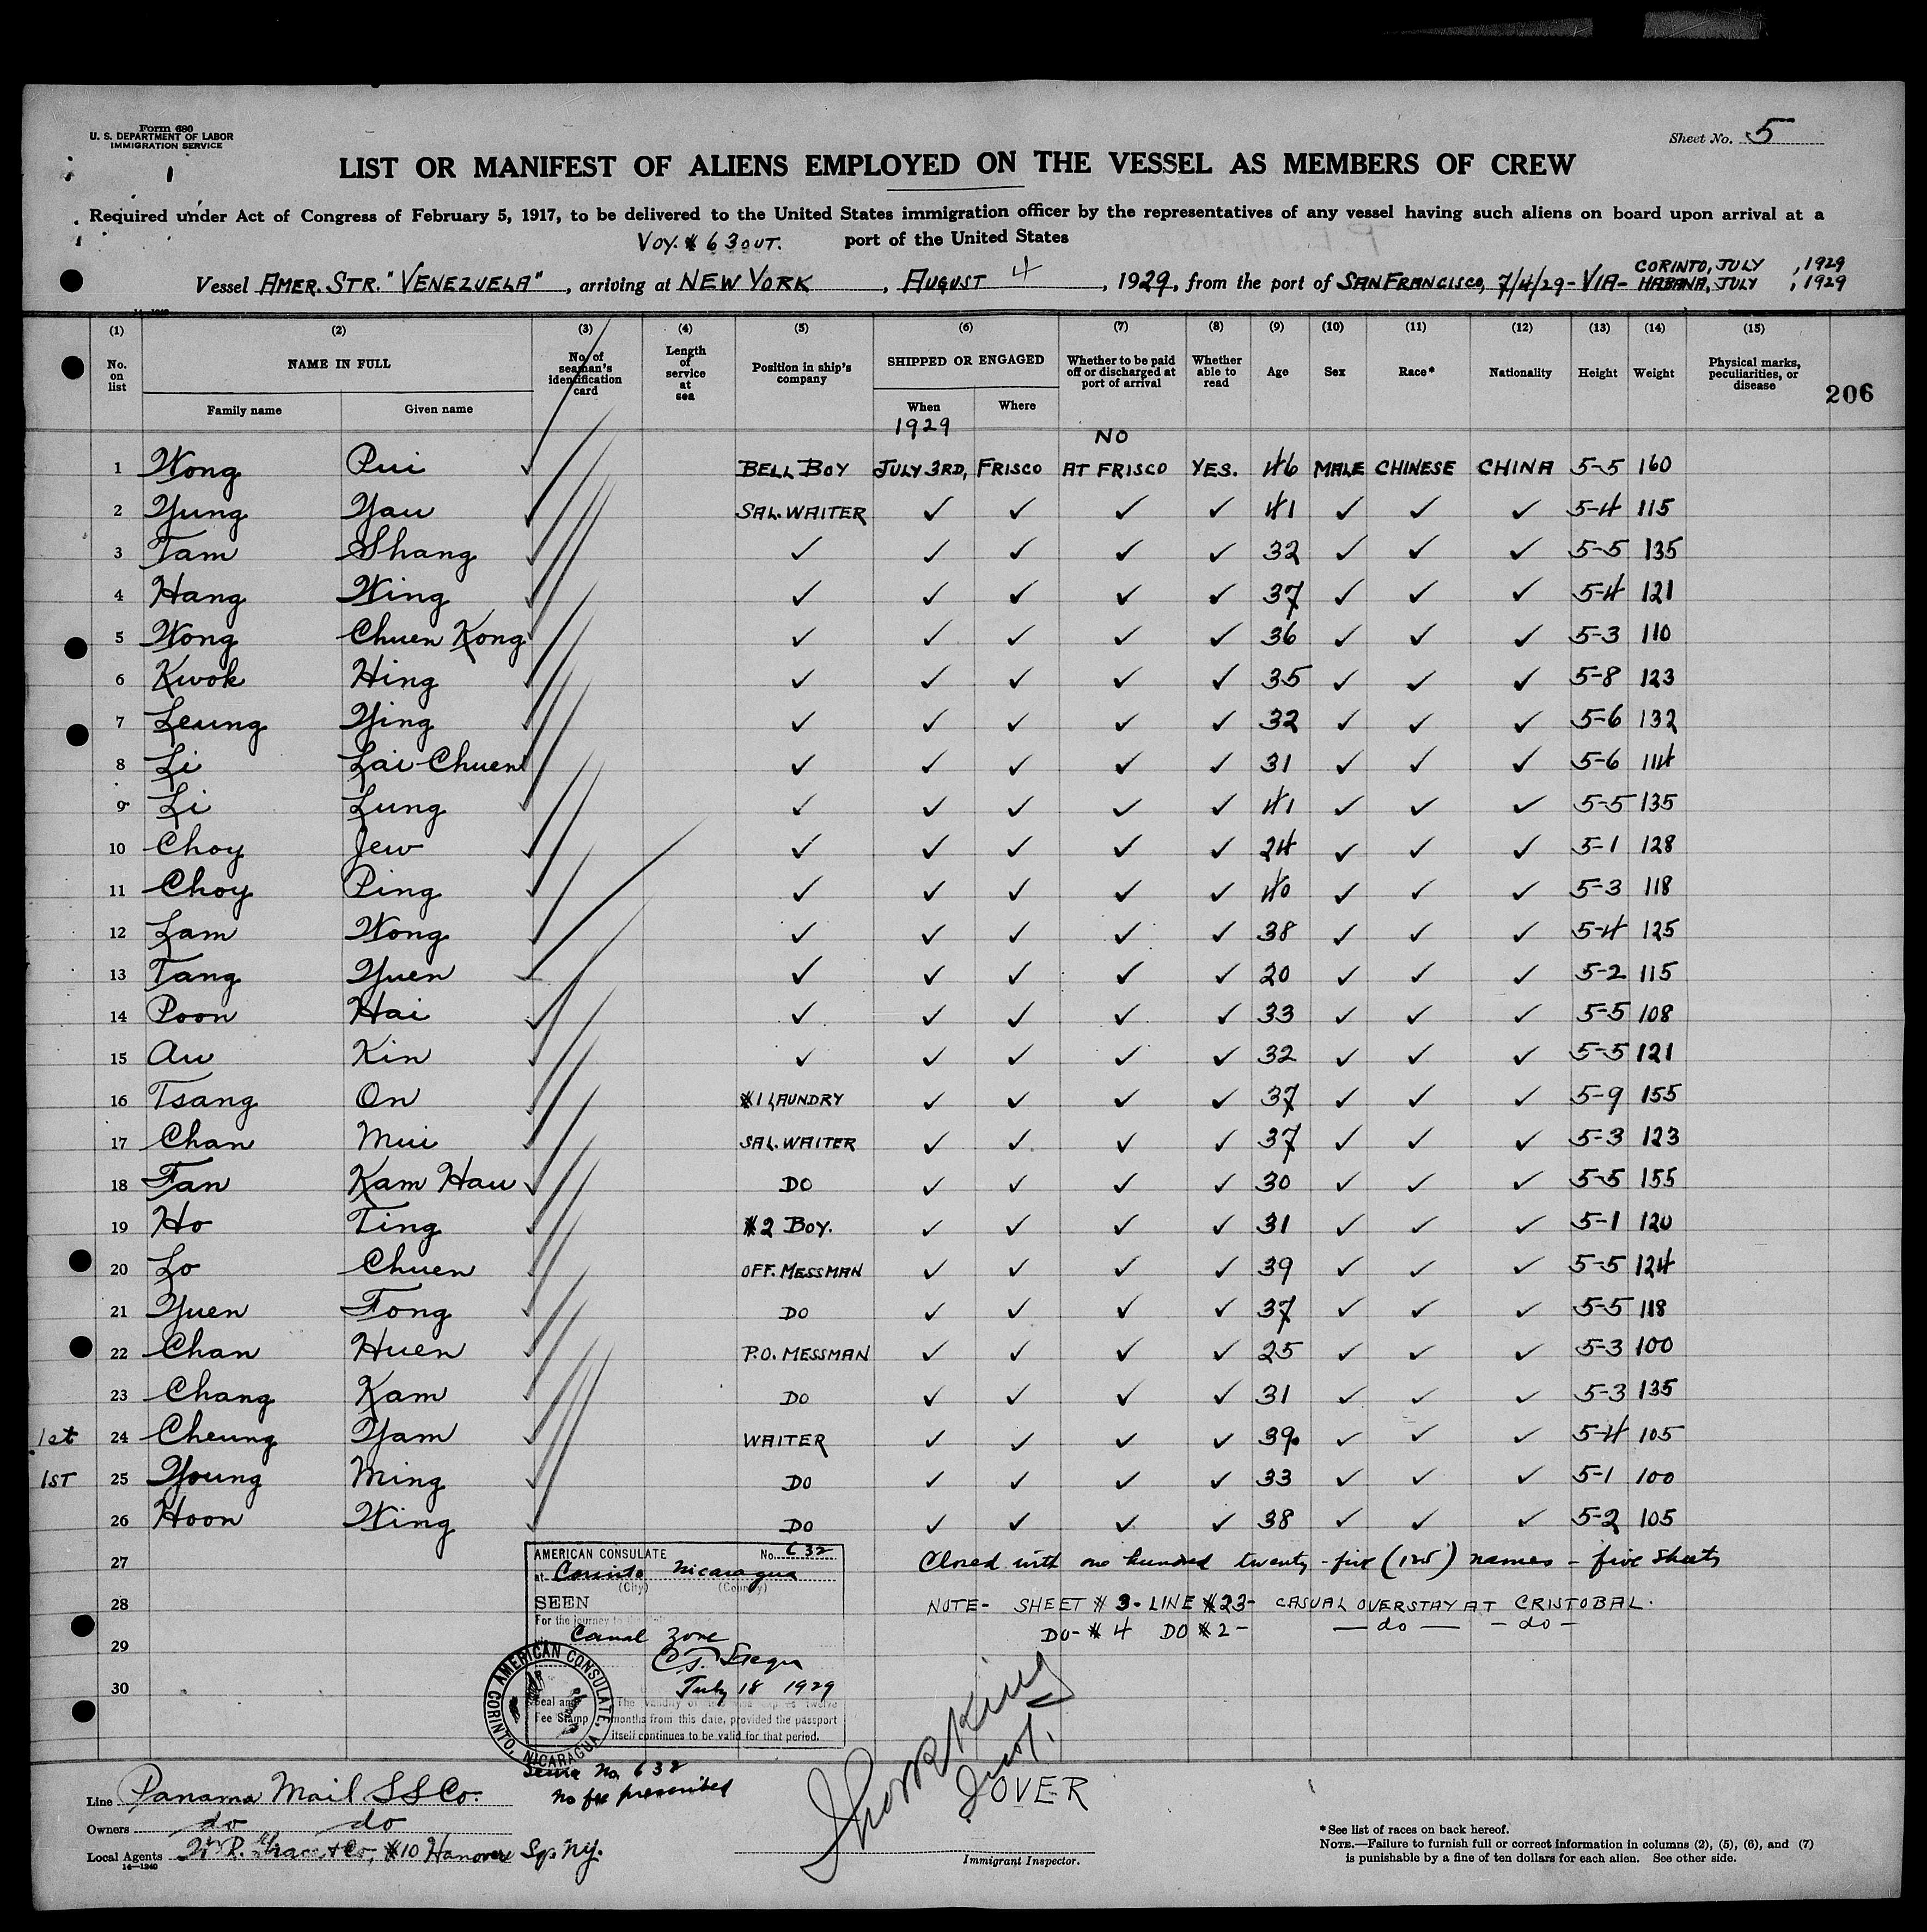 Form 680
U. S. DEPARTMENT OF LABOR
IMMIGRATION SERVICE
Sheet No. 5
LIST OR MANIFEST OF ALIENS EMPLOYED ON THE VESSEL AS MEMBERS OF CREW
Required under Act of Congress of February 5, 1917, to be delivered to the United States immigration officer by the representatives of any vessel having such aliens on board upon arrival at a
VOY. # 63 OUT. port of the United States
Vessel AMER. STR. "VENEZUELA", arriving at NEW YORK, AUGUST 4, 1929, from the port of SAN FRANCISCO, 7/4/29 - VIA - CORINTO, JULY , 1929
HABANA, JULY , 1929
(1) (2) (3) (4) (5) (6) (7) (8) (9) (10) (11) (12) (13) (14) (15)
No. on list NAME IN FULL No. of seaman's identification card Length of service at sea Position in ship's company SHIPPED OR ENGAGED Whether to be paid off or discharged at port of arrival Whether able to read Age Sex Race* Nationality Height Weight Physical marks, peculiarities, or disease
206
Family name Given name When Where
1929 NO
1 Wong Pui ✓ BELL BOY JULY 3RD, FRISCO AT FRISCO YES. 46 MALE CHINESE CHINA 5-5 160
2 Yung Yau ✓ SAL. WAITER ✓ ✓ ✓ ✓ 41 ✓ ✓ ✓ 5-4 115
3 Tam Shang ✓ ✓ ✓ ✓ ✓ ✓ 32 ✓ ✓ ✓ 5-5 135
4 Hang Wing ✓ ✓ ✓ ✓ ✓ ✓ 37 ✓ ✓ ✓ 5-4 121
5 Wong Chuen Kong ✓ ✓ ✓ ✓ ✓ ✓ 36 ✓ ✓ ✓ 5-3 110
6 Kwok Hing ✓ ✓ ✓ ✓ ✓ ✓ 35 ✓ ✓ ✓ 5-8 123
7 Leung Ying ✓ ✓ ✓ ✓ ✓ ✓ 32 ✓ ✓ ✓ 5-6 132
8 Li Lai Chuen ✓ ✓ ✓ ✓ ✓ ✓ 31 ✓ ✓ ✓ 5-6 114
9 Li Lung ✓ ✓ ✓ ✓ ✓ ✓ 41 ✓ ✓ ✓ 5-5 135
10 Choy Jew ✓ ✓ ✓ ✓ ✓ ✓ 24 ✓ ✓ ✓ 5-1 128
11 Choy Ping ✓ ✓ ✓ ✓ ✓ ✓ 40 ✓ ✓ ✓ 5-3 118
12 Lam Wong ✓ ✓ ✓ ✓ ✓ ✓ 38 ✓ ✓ ✓ 5-4 125
13 Tang Yuen ✓ ✓ ✓ ✓ ✓ ✓ 20 ✓ ✓ ✓ 5-2 115
14 Poon Hai ✓ ✓ ✓ ✓ ✓ ✓ 33 ✓ ✓ ✓ 5-5 108
15 Au Kin ✓ ✓ ✓ ✓ ✓ ✓ 32 ✓ ✓ ✓ 5-5 121
16 Tsang On ✓ #1 LAUNDRY ✓ ✓ ✓ ✓ 37 ✓ ✓ ✓ 5-9 155
17 Chan Mui ✓ SAL. WAITER ✓ ✓ ✓ ✓ 37 ✓ ✓ ✓ 5-3 123
18 Fan Kam Hau ✓ DO ✓ ✓ ✓ ✓ 30 ✓ ✓ ✓ 5-5 155
19 Ho Ting ✓ #2 BOY. ✓ ✓ ✓ ✓ 31 ✓ ✓ ✓ 5-1 120
20 Lo Chuen ✓ OFF. MESSMAN ✓ ✓ ✓ ✓ 39 ✓ ✓ ✓ 5-5 124
21 Yuen Fong ✓ DO ✓ ✓ ✓ ✓ 37 ✓ ✓ ✓ 5-5 118
22 Chan Huen ✓ P.O. MESSMAN ✓ ✓ ✓ ✓ 25 ✓ ✓ ✓ 5-3 100
23 Chang Kam ✓ DO ✓ ✓ ✓ ✓ 31 ✓ ✓ ✓ 5-3 135
1st 24 Cheung Yam ✓ WAITER ✓ ✓ ✓ ✓ 39 ✓ ✓ ✓ 5-4 105
1ST 25 Young Ming ✓ DO ✓ ✓ ✓ ✓ 33 ✓ ✓ ✓ 5-1 100
26 Hoon Wing ✓ DO ✓ ✓ ✓ ✓ 38 ✓ ✓ ✓ 5-2 105
27 Closed with one hundred twenty-five (125) names - five sheets
28 NOTE- SHEET # 3 - LINE #23- CASUAL OVERSTAY AT CRISTOBAL.
29 DO- # 4 DO #2 - - do - - do -
30
AMERICAN CONSULATE No. 632
at Corinto Nicaragua
(City) (Country)
SEEN
For the journey to the
Canal Zone
July 18 1929
Seal and Fee Stamp
The validity of twelve
months from this date, provided the passport
itself continues to be valid for that period.
AMERICAN CONSULATE, CORINTO, NICARAGUA
No. 632
No fee prescribed
OVER
Immigrant Inspector.
Line Panama Mail SS Co.
Owners do do
Local Agents W. R. Grace & Co, #10 Hanover Sq. NY.
14—1240
*See list of races on back hereof.
NOTE.—Failure to furnish full or correct information in columns (2), (5), (6), and (7)
is punishable by a fine of ten dollars for each alien. See other side.